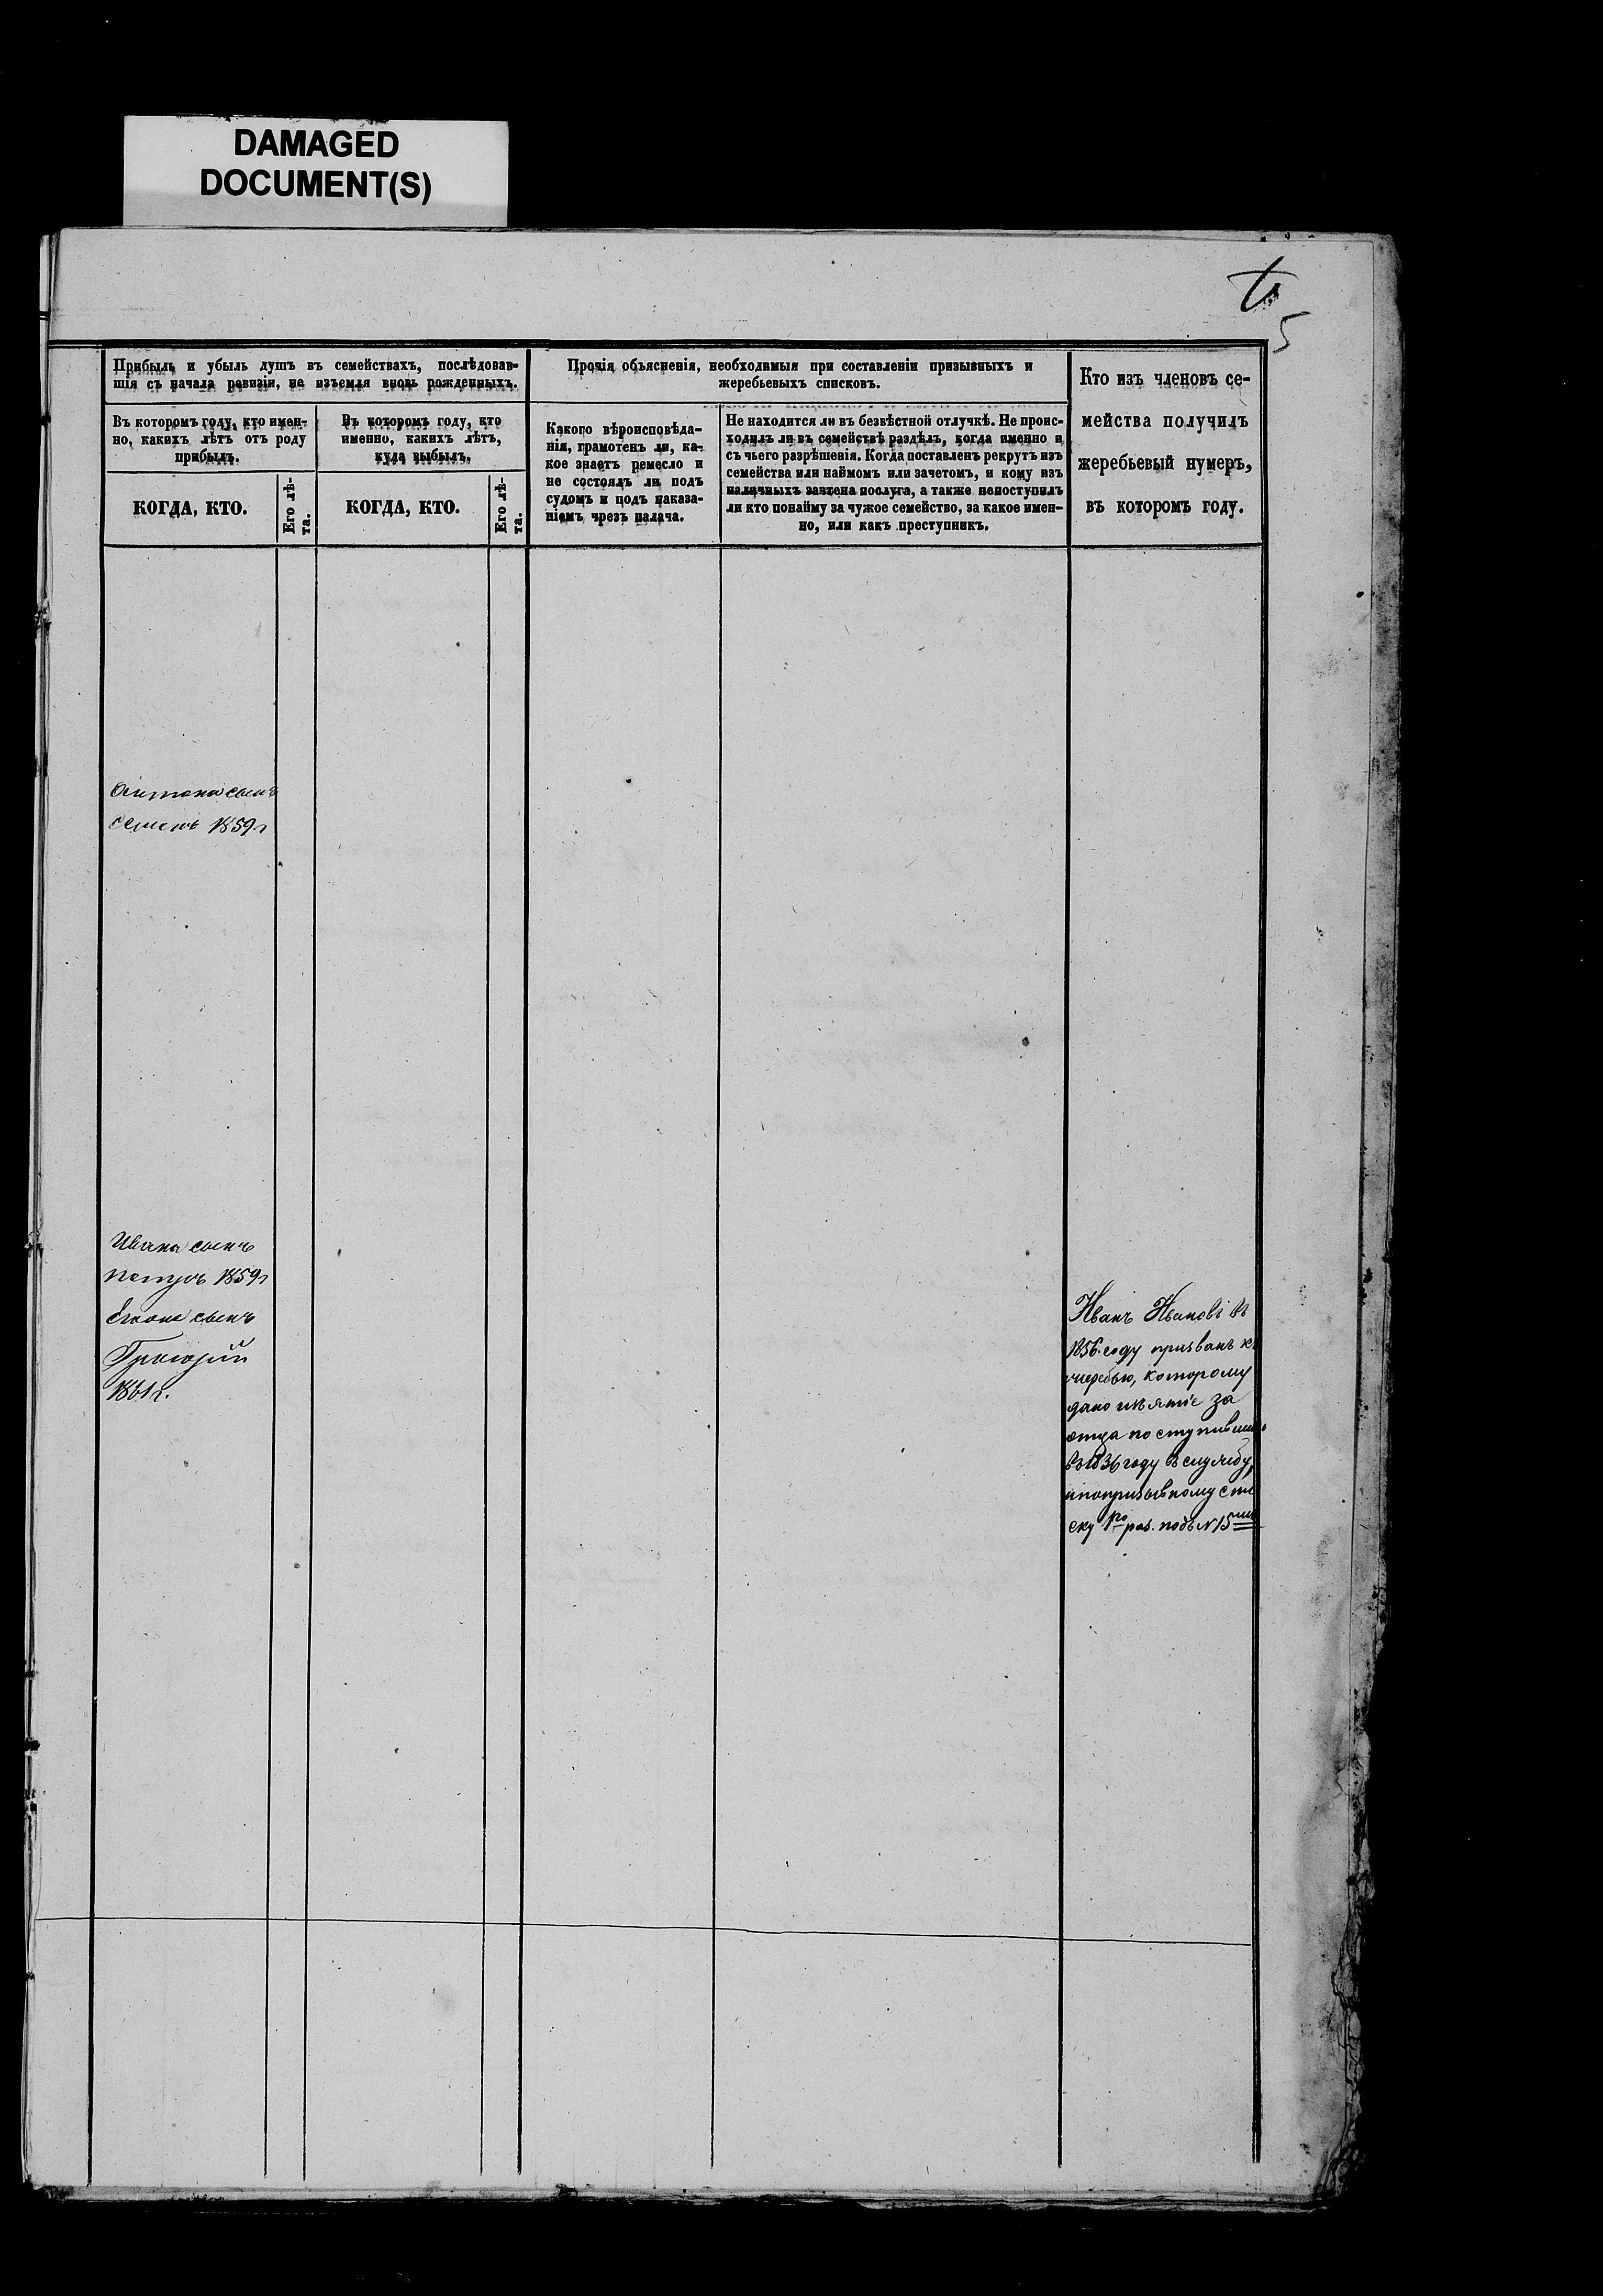 DAMAGED
DOCUMENT(S)
5
Прибыль и убыль душъ въ семействахъ, послѣдовав-
шія съ начала ревизіи, не изъемля вновь рожденныхъ.
Въ которомъ году, кто имен-
но, какихъ лѣтъ отъ роду
прибылъ.
Въ которомъ году, кто
именно, какихъ лѣтъ,
куда выбылъ.
КОГДА, КТО.
Его лѣ-
та.
КОГДА, КТО.
Его лѣ-
та.
Прочія объясненія, необходимыя при составленіи призывныхъ и
жеребьевыхъ списковъ.
Какого вѣроисповѣда-
нія, грамотенъ ли, ка-
кое знаетъ ремесло и
не состоялъ ли подъ
судомъ и подъ наказа-
ніемъ чрезъ палача.
Не находится ли въ безвѣстной отлучкѣ. Не проис-
ходилъ ли въ семействѣ раздѣлъ, когда именно и
съ чьего разрѣшенія. Когда поставленъ рекрутъ изъ
семейства или наймомъ или зачетомъ, и кому изъ
наличныхъ зачтена послуга, а также непоступилъ
ли кто понайму за чужое семейство, за какое имен-
но, или какъ преступникъ.
Кто изъ членовъ се-
мейства получилъ
жеребьевый нумеръ,
въ которомъ году.
Антона сынъ
Семенъ 1859г
Ивана сынъ
Петръ 1859г
сынъ
Григорій
1861г.
Иванъ Ивановъ въ
1856 году призванъ к
жеребью, которому
дано изъятіе за
отца поступивша
въ 1836 году в службу,
и по призывному спи
ску 1го раз. подъ №15